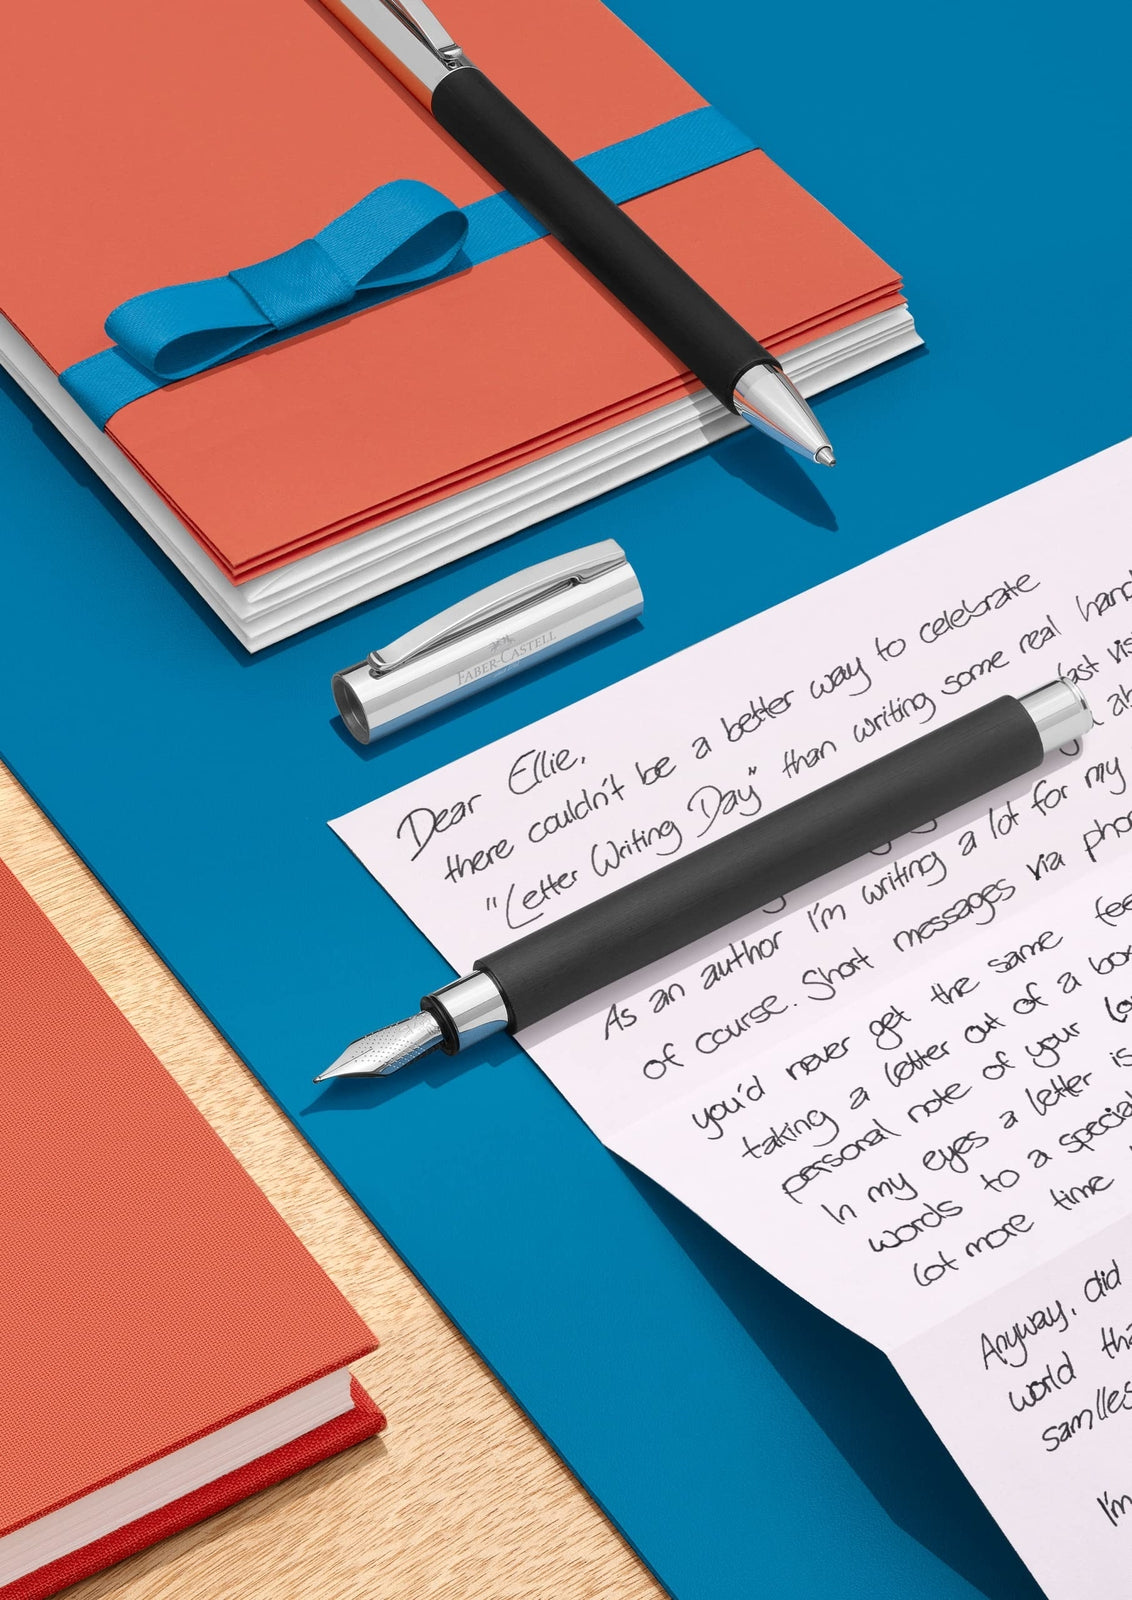 FABER-CASTELL
Dear Ellie,
there couldn't be a better way to celebrate
"Letter Writing Day" than writing some real hand
last vis
As an author I'm writing a lot for my
of course. Short messages via phon
you'd never get the same fee
taking a letter out of a box
personal note of your lov
In my eyes a letter is
words to a special
lot more time
Anyway, did
world tha
samlles
I'm